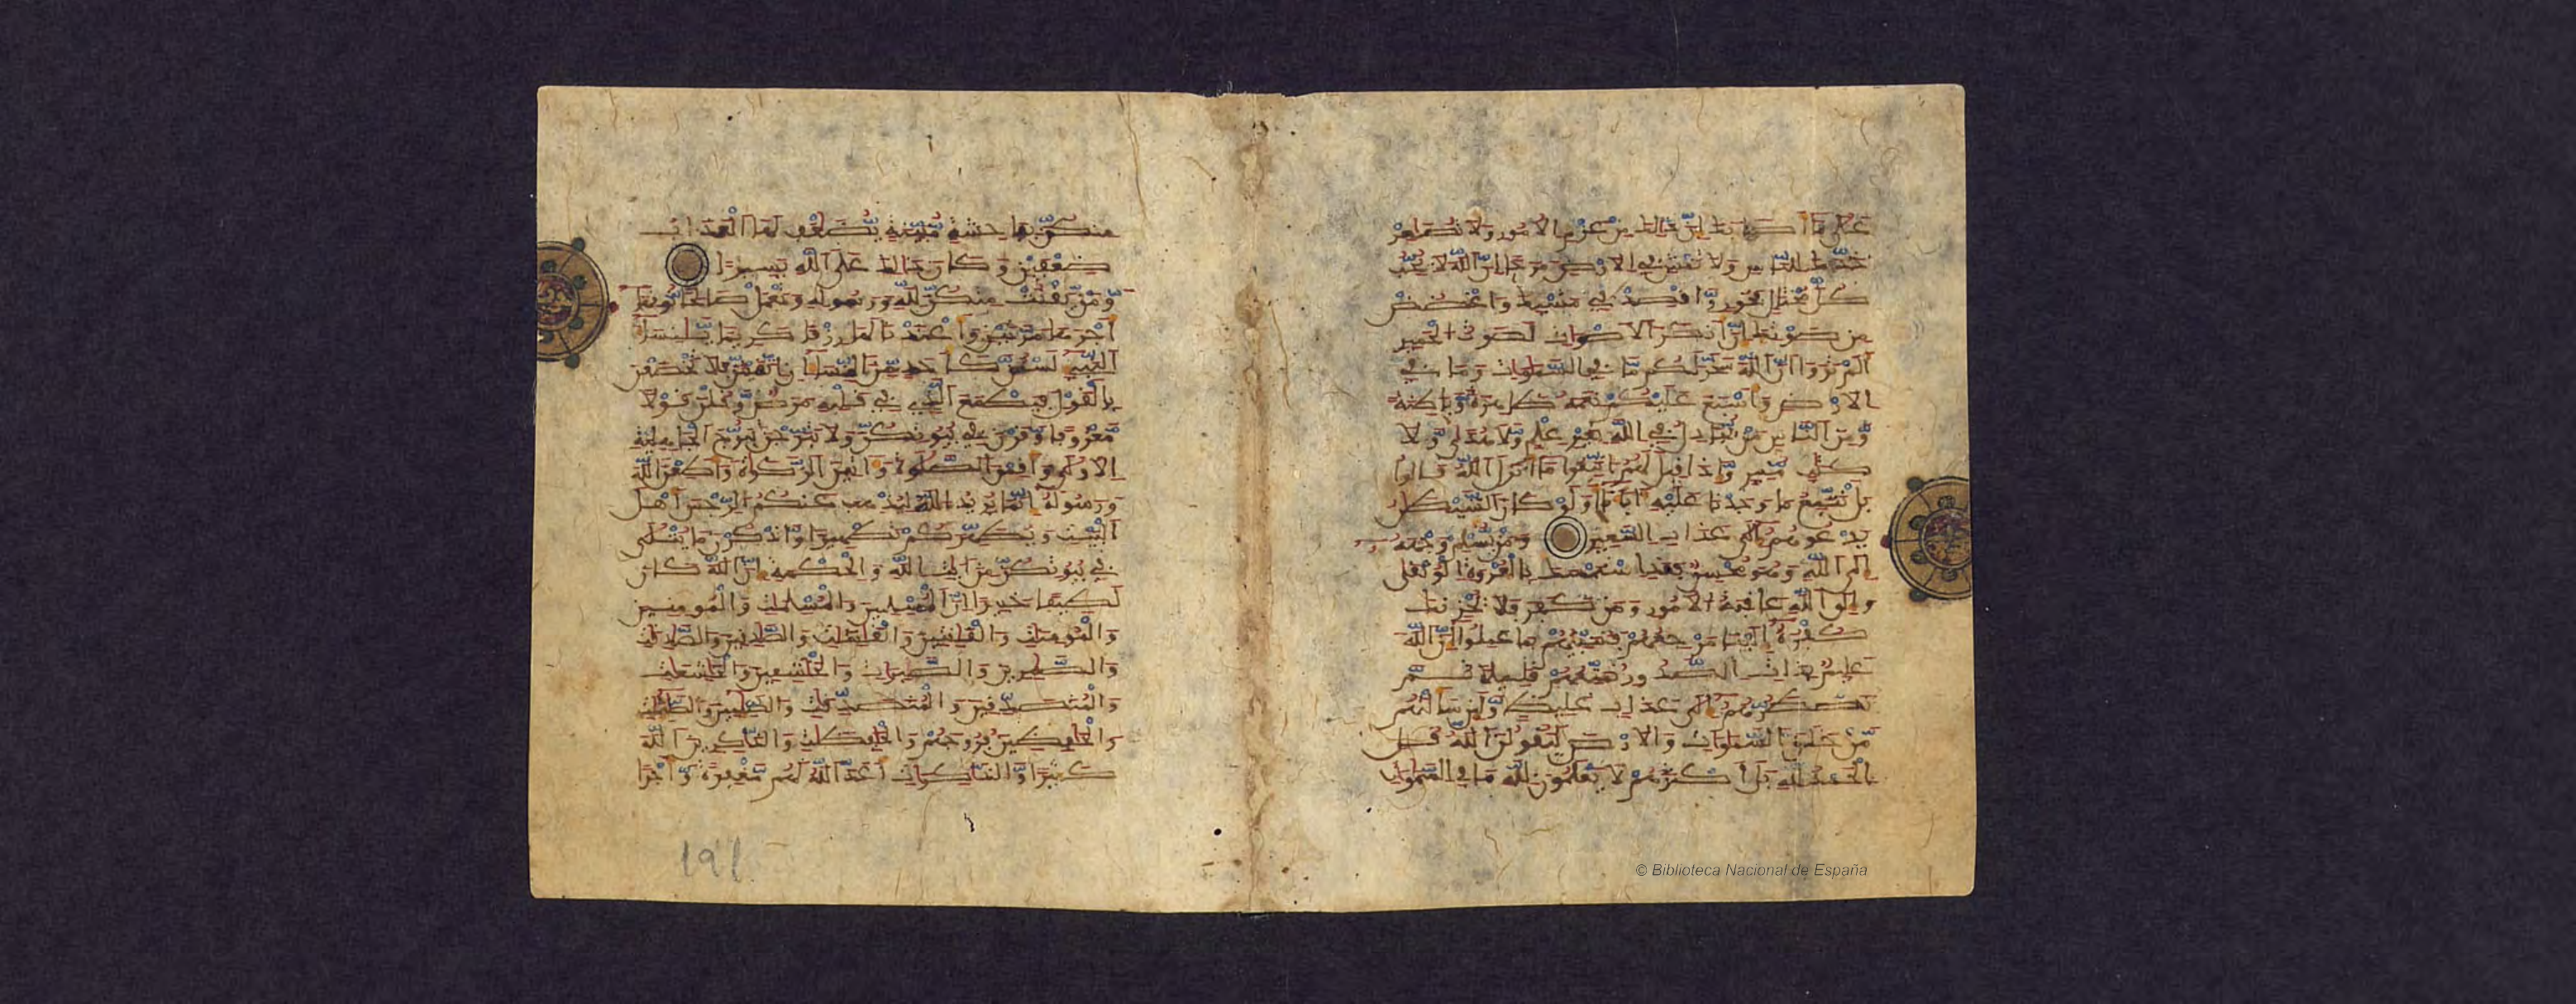 على ما اصابك ان ذلك من عزم الامور ولا تصعر
خدك للناس ولا تمش في الارض مرحا ان الله لا يحب
كل مختال فخور واقصد في مشيك واغضض
من صوتك ان انكر الاصوات لصوت الحمير
الم تروا ان الله سخر لكم ما في السموات وما في
الارض واسبغ عليكم نعمه ظاهرة وباطنة
ومن الناس من يجادل في الله بغير علم ولا هدى ولا
كتب منير واذا قيل لهم اتبعوا ما انزل الله قالوا
بل نتبع ما وجدنا عليه اباءنا اولو كان الشيطن
يدعوهم الى عذاب السعير ومن يسلم وجهه
الى الله وهو محسن فقد استمسك بالعروة الوثقى
والى الله عاقبة الامور ومن كفر فلا يحزنك
كفره الينا مرجعهم فننبئهم بما عملوا ان الله
عليم بذات الصدور نمتعهم قليلا ثم
نضطرهم الى عذاب غليظ ولئن سالتهم
من خلق السموات والارض ليقولن الله قل
الحمد لله بل اكثرهم لا يعلمون لله ما في السموات
منكن بفحشة مبينة يضعف لها العذاب
ضعفين وكان ذلك على الله يسيرا
ومن يقنت منكن لله ورسوله وتعمل صلحا نوتها
اجرها مرتين واعتدنا لها رزقا كريما ينساء
النبيء لستن كاحد من النساء ان اتقيتن فلا تخضعن
بالقول فيطمع الذي في قلبه مرض وقلن قولا
معروفا وقرن في بيوتكن ولا تبرجن تبرج الجهلية
الاولى واقمن الصلوة واتين الزكوة واطعن الله
ورسوله انما يريد الله ليذهب عنكم الرجس اهل
البيت ويطهركم تطهيرا واذكرن ما يتلى
في بيوتكن من ايت الله والحكمة ان الله كان
لطيفا خبيرا ان المسلمين والمسلمت والمومنين
والمومنت والقنتين والقنتت والصدقين والصدقت
والصبرين والصبرات والخشعين والخشعت
والمتصدقين والمتصدقت والصئمين والصئمت
والحفظين فروجهم والحفظت والذكرين الله
كثيرا والذكرات اعد الله لهم مغفرة واجرا
191
© Biblioteca Nacional de España